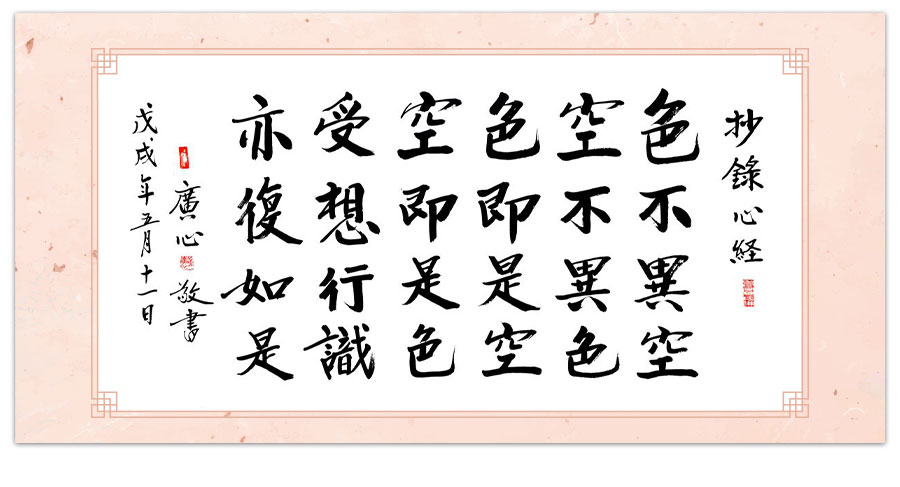 抄錄心経
色不異空
空不異色
色即是空
空即是色
受想行識
亦復如是
廣心敬書
戊戌年五月十一日